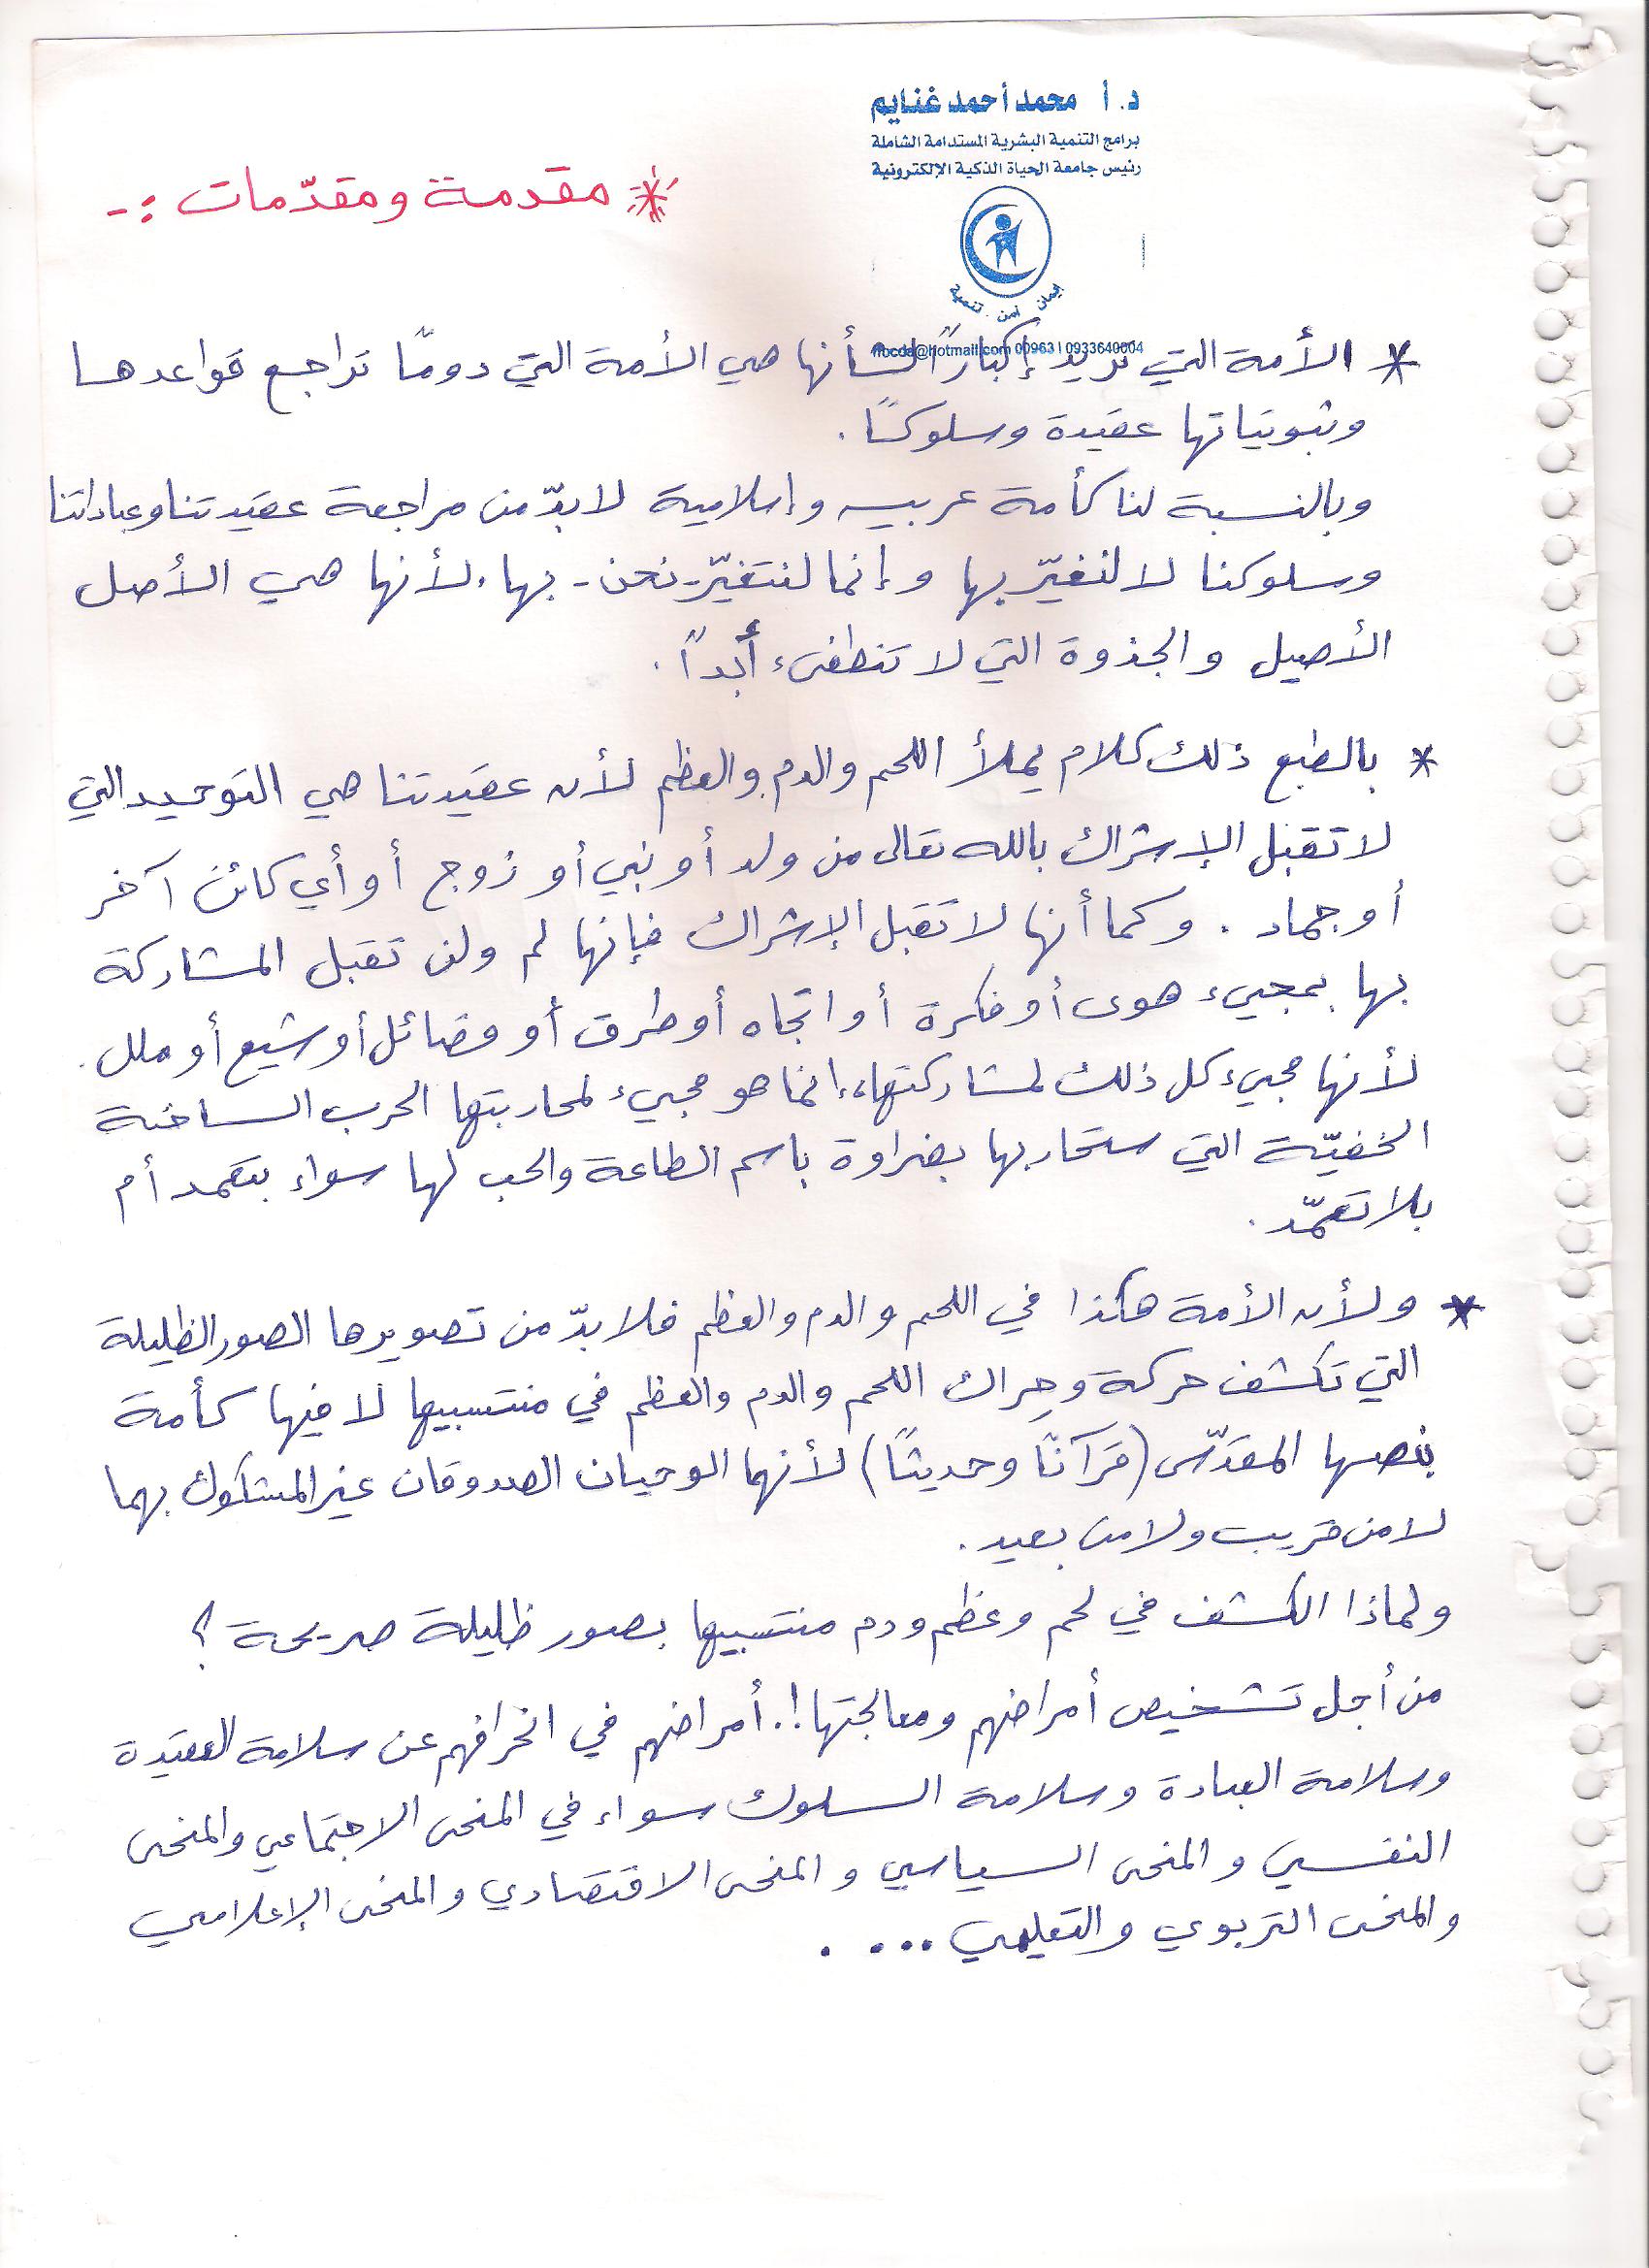 د. أ محمد أحمد غنايم
برامج التنمية البشرية المستدامة الشاملة
رئيس جامعة الحياة الذكية الإلكترونية
* مقدمة ومقدّمات :-
إيمان . أمن . تنمية
@hotmail.com 00963 | 0933640004
* الأمة التي تريد إكباراً لشأنها هي الأمة التي دومًا تراجع قواعدها
وثبوتياتها عقيدة وسلوكًا .
وبالنسبة لنا كأمة عربيه وإسلامية لا بدّ من مراجعة عقيدتنا وعباداتنا
وسلوكنا لا لنغيّر بها وإنما لنتغيّر - نحن - بها، لأنها هي الأصل
الأصيل والجذوة التي لا تنطفىء أبداً .
* بالطبع ذلك كلام يملأ اللحم والدم والعظم لأن عقيدتنا هي التوحيد التي
لا تقبل الإشراك بالله تعالى من ولد أو نبي أو زوج أو أي كائن آخر
أو جماد . وكما أنها لا تقبل الإشراك فإنها لم ولن تقبل المشاركة
بها بمجيء هوى أو فكرة أو اتجاه أو طرق أو فصائل أو شيع أو ملل .
لأنها مجيء كل ذلك لمشاركتها، إنما هو مجيء لمحاربتها الحرب الساخنة
الخفيّة التي ستحاربها بضراوة باسم الطاعة والحب لها سواء بتعمد أم
بلا تعمّد .
* ولأن الأمة هكذا في اللحم والدم والعظم فلا بدّ من تصويرها الصور الظليلة
التي تكشف حركة وحِراك اللحم والدم والعظم في منتسبيها لا فيها كأمة
بنصها المقدّس (قرآنًا وحديثًا) لأنهما الوحيان الصدوقان غير المشكوك بهما
لا من قريب ولا من بعيد .
ولماذا الكشف في لحم وعظم ودم منتسبيها بصور ظليلة صريحة ؟
من أجل تشخيص أمراضهم ومعالجتها !. أمراضهم في انحرافهم عن سلامة العقيدة
وسلامة العبادة وسلامة السلوك سواء في المنحى الاجتماعي والمنحى
النفسي والمنحى السياسي والمنحى الاقتصادي والمنحى الإعلامي
والمنحى التربوي والتعليمي ... .